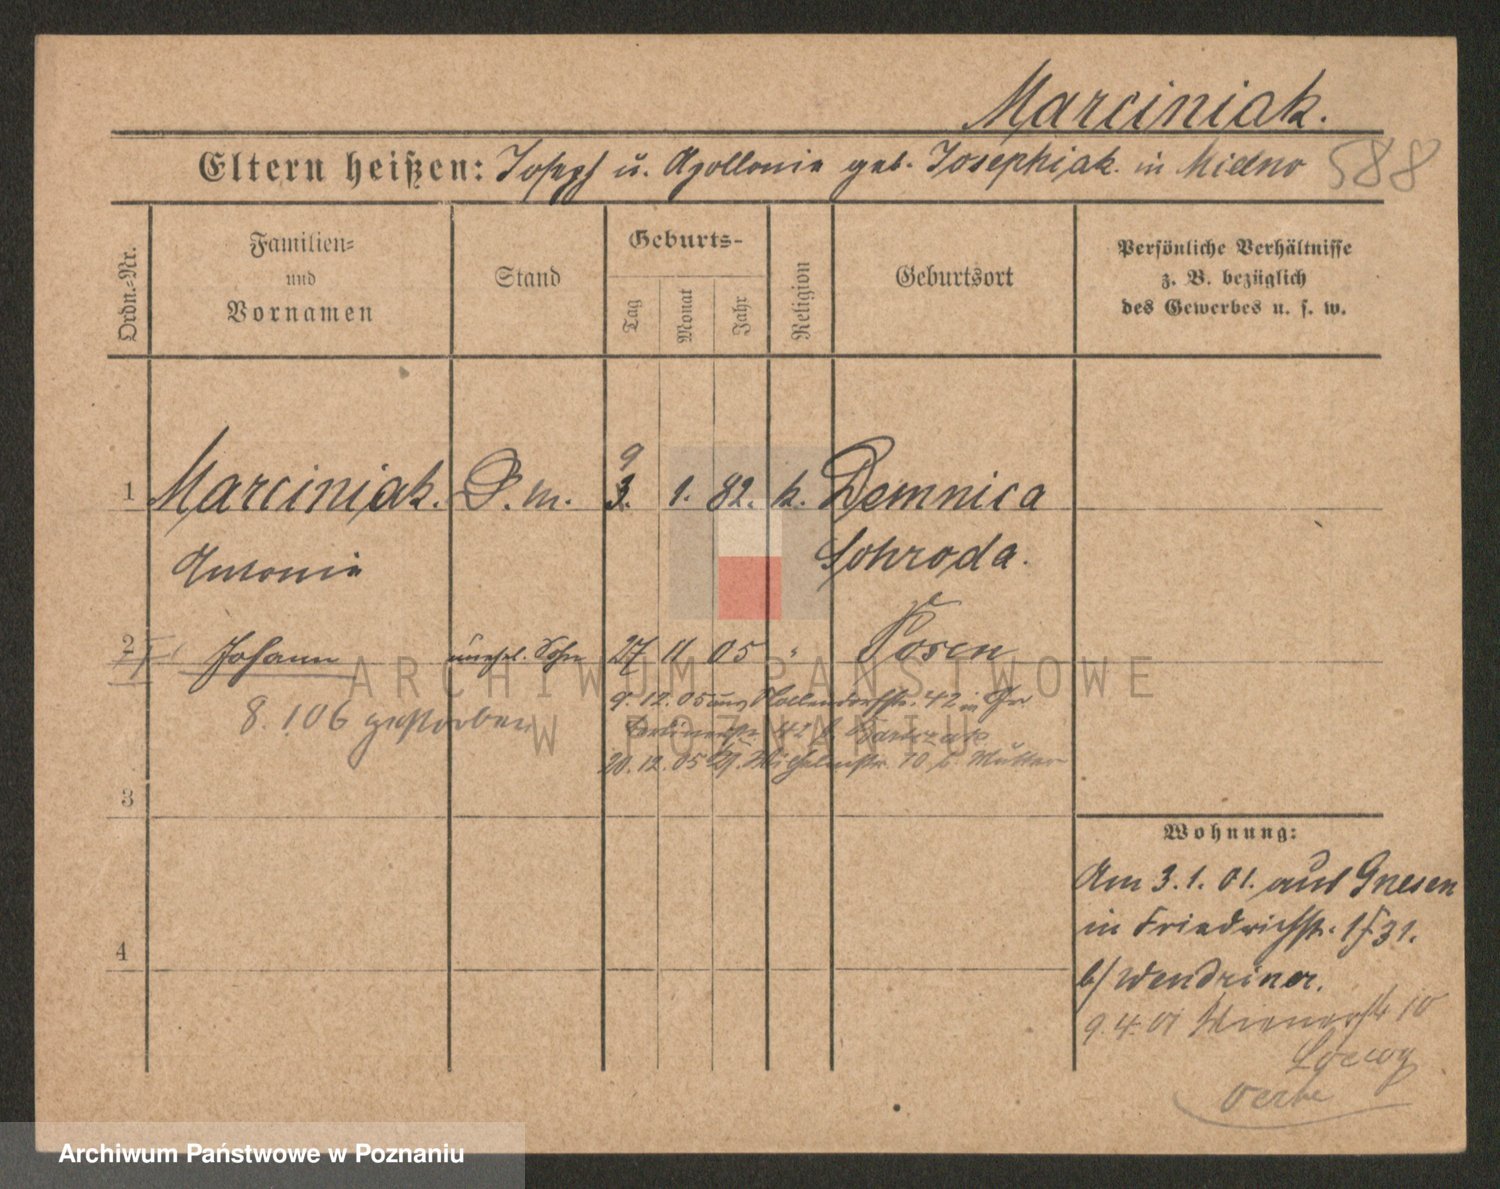 Marciniak.
Eltern heißen: Joseph u. Apollonia geb. Josephiak. in Mielno 588
Ordn.-Nr.
Familien-
und
Vornamen
Stand
Geburts-
Tag
Monat
Jahr
Religion
Geburtsort
Persönliche Verhältnisse
z. B. bezüglich
des Gewerbes u. s. w.
9
1 Marciniak. D. m. 3. 1. 82. k. Demnica
Antonie Schroda.
2 Johann unehel. Sohn 27 11 05 " Posen
8. 1 06 gestorben
9. 12. 05 aus 42 in
42 b.
20. 12. 05 Wilhelmstr. 10 b. Mutter
3
4
Wohnung:
Am 3. 1. 01. aus Gnesen
in Friedrichstr. 31.
b/ Wendriner.
9. 4. 01 Wienerstr 10
Loewy
ARCHIWUM PAŃSTWOWE
W POZNANIU
Archiwum Państwowe w Poznaniu